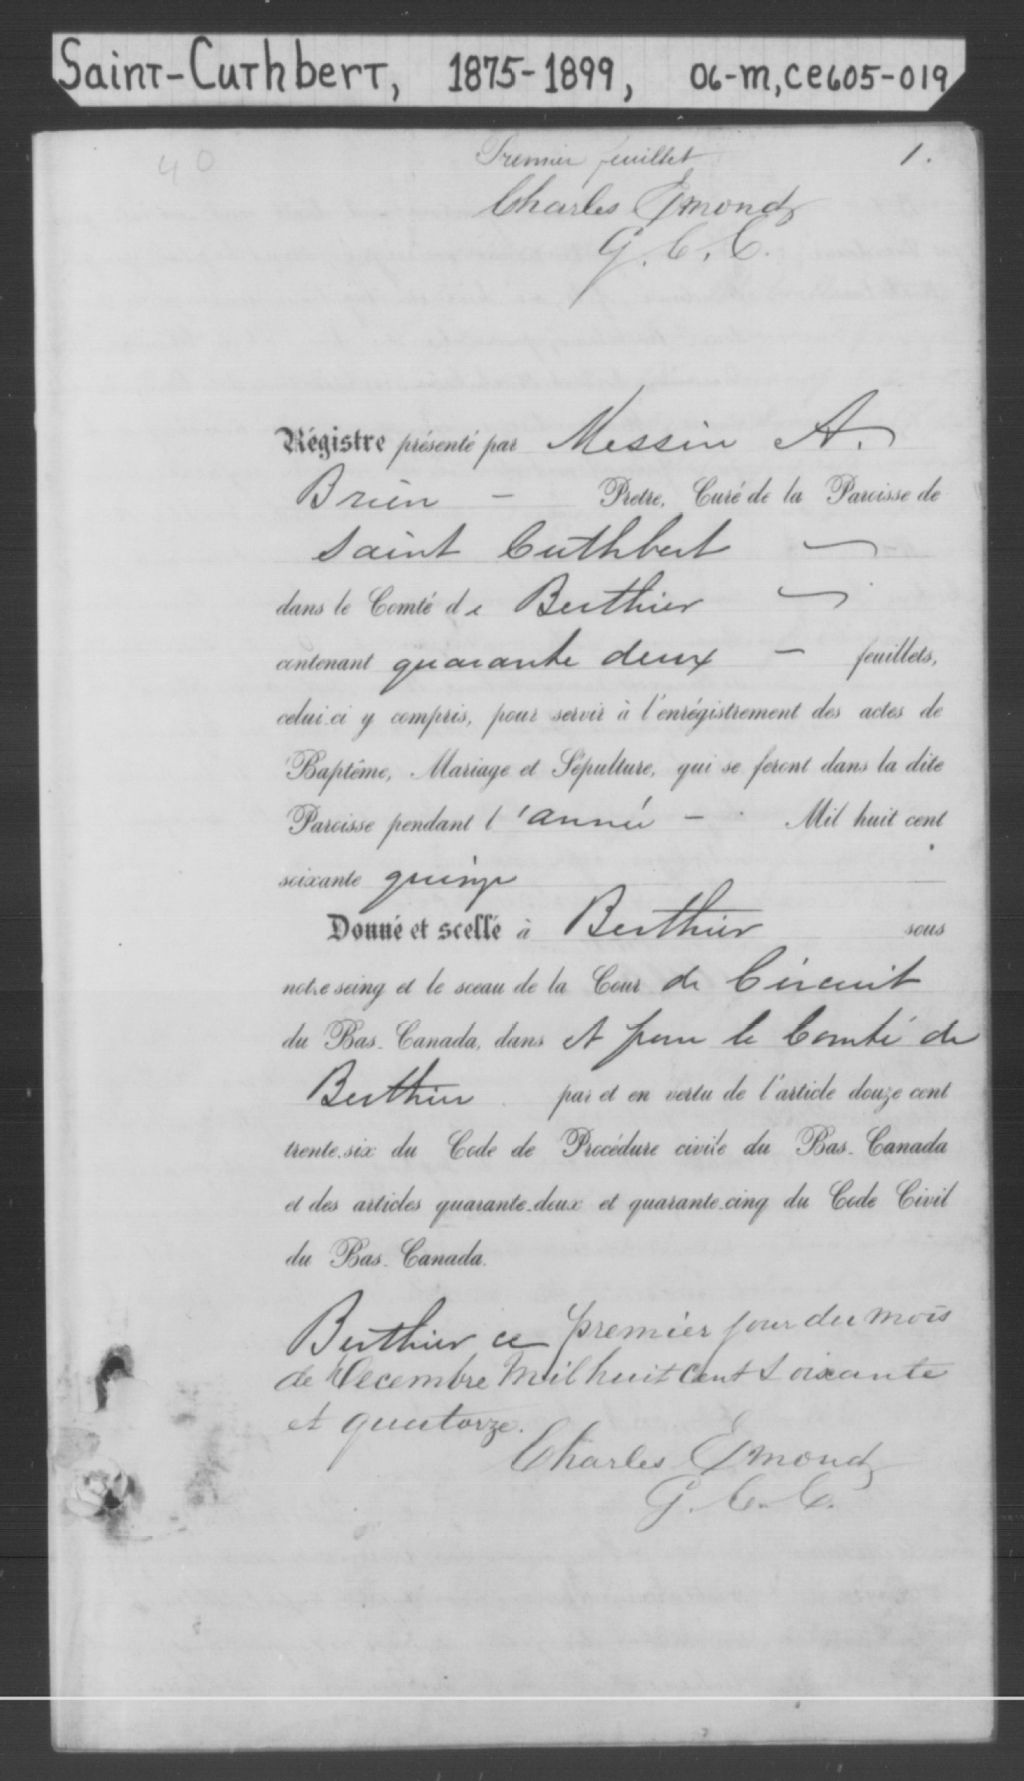 Saint-Cuthbert, 1875-1899, 06-M, CE605-019
40
Premier feuillet 1.
Charles Emond
G. C. C.
Régistre présenté par Messire A.
Brien - Prêtre, Curé de la Paroisse de
Saint Cuthbert
dans le Comté de Berthier
contenant quarante deux - feuillets,
celui-ci y compris, pour servir à l'enrégistrement des actes de
Baptême, Mariage et Sépulture, qui se feront dans la dite
Paroisse pendant l'année - Mil huit cent
soixante quinze
Donné et scellé à Berthier sous
notre seing et le sceau de la Cour de Circuit
du Bas-Canada, dans et pour le Comté de
Berthier par et en vertu de l'article douze cent
trente-six du Code de Procédure civile du Bas-Canada
et des articles quarante-deux et quarante-cinq du Code Civil
du Bas-Canada.
Berthier ce premier jour du mois
de Decembre Mil huit cent Soixante
et quatorze.
Charles Emond
G. C. C.